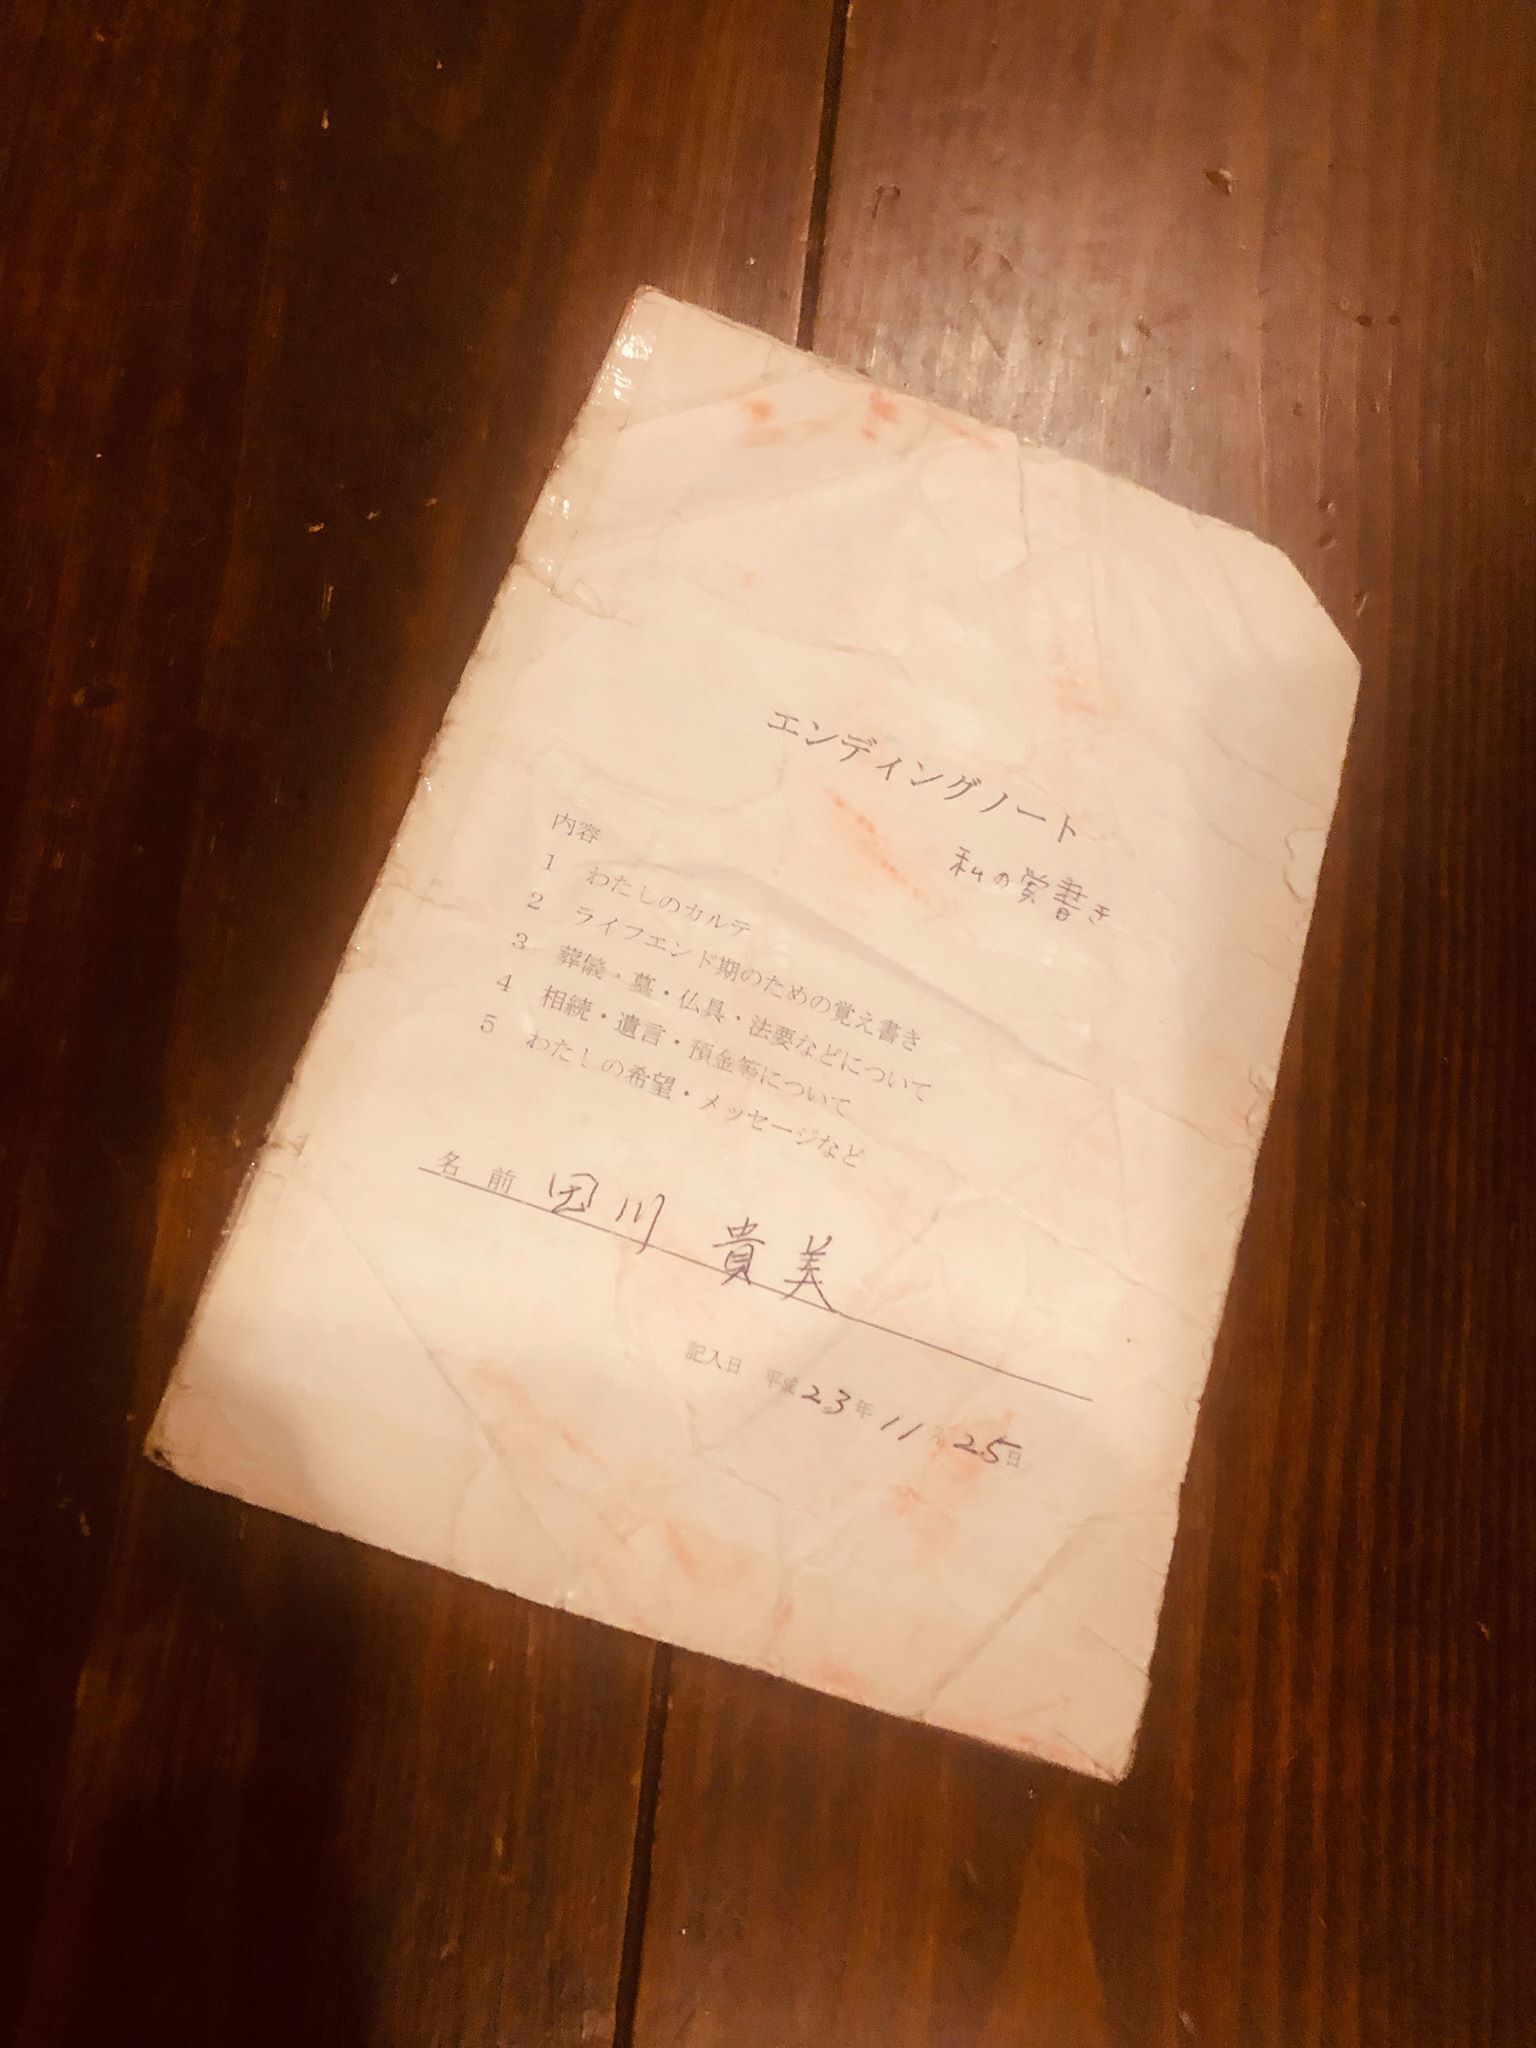 エンディングノート
私の覚書き
内容
1 わたしのカルテ
2 ライフエンド期のための覚え書き
3 葬儀・墓・仏具・法要などについて
4 相続・遺言・預金等について
5 わたしの希望・メッセージなど
名前 田川 貴美
記入日 平成23年11月25日